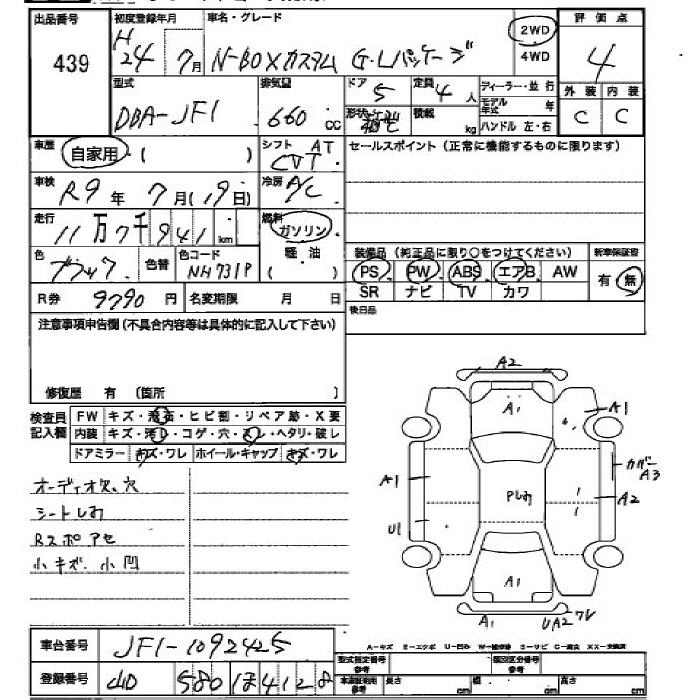 出品番号 初度登録年月 車名・グレード 2WD 評価点
439 H24 7月 N-BOXカスタム G・Lパッケージ 4WD 4
型式 排気量 ドア 5 定員 4人 ディーラー・並行 外装 内装
DBA-JF1 660cc 形状 積載 kg モデル年式 年 C C
ハンドル 左・右
車歴 自家用・( ) シフト AT CVT セールスポイント (正常に機能するものに限ります)
車検 R9年 7月(19日) 冷房 A/C
走行 11万7千941km 燃料 ガソリン
軽油
色 ブラック 色替 色コード NH731P 装備品 (純正品に限り○をつけてください) 新車保証書
PS PW ABS エアB AW 有・無
R券 9790円 名変期限 月 日 SR ナビ TV カワ
注意事項申告欄 (不具合内容等は具体的に記入して下さい) 後日品
修復歴 有 (箇所 )
検査員記入欄 FW キズ・飛石・ヒビ割・リペア跡・X要
内装 キズ・汚レ・コゲ・穴・スレ・ヘタリ・破レ
ドアミラー キズ・ワレ ホイール・キャップ キズ・ワレ
オーディオ欠、穴
シートしみ
Rスポ アセ
小キズ 小凹
A2
A1 A1
A1 カバーA3
Pしみ A2
U1
A1
A1 UA2ワレ
車台番号 JF1-1092425
登録番号 580 ほ 4128
A-キズ E-エクボ U-凹み
型式指定番号 参考 類別区分番号 参考
車庫証明用 参考 長さ cm 幅 cm 高さ cm